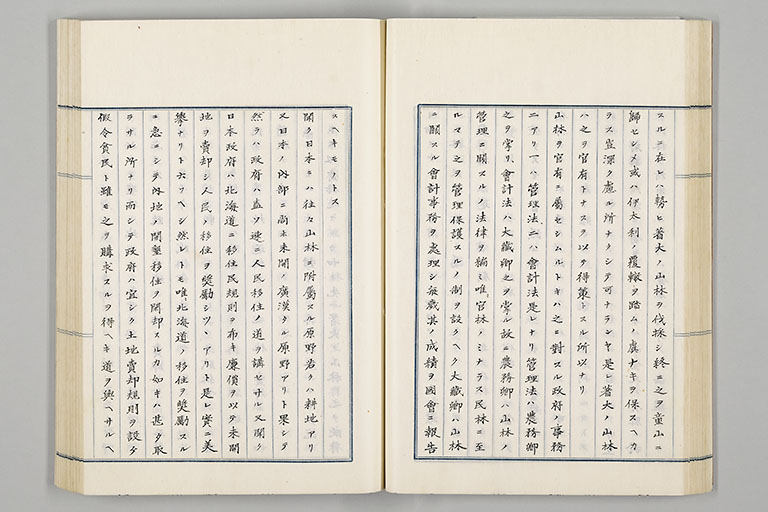 スルニ在レハ勢ヒ著大ノ山林ヲ伐採シ終ニ之ヲ童山ニ
歸セシメ或ハ伊太利ノ覆轍ヲ踏ムノ虞ナキヲ保スヘカ
ラス豈深ク慮ル所ナクシテ可ナランヤ是レ著大ノ山林
ハ之ヲ官有トナスヲ以テ得策トスル所以ナリ
山林ヲ官有ニ屬セシムルトキハ之ニ對スル政府ノ事務
ニアリ一ハ管理法二ハ會計法是レナリ管理法ハ農務卿
之ヲ掌リ會計法ハ大藏卿之ヲ掌ル故ニ農務卿ハ山林ノ
管理ニ關スルノ法律ヲ編ミ唯官林ノミナラス民林ニ至
ルマテ之ヲ管理保護スルノ制ヲ設クヘク大藏卿ハ山林
ニ關スル會計事務ヲ處理シ每歲其ノ成績ヲ國會ニ報告
スヘキモノトス
聞ク日本ニハ往々山林ニ附屬スル原野若クハ耕地アリ
又日本ノ內部ニ尚ホ未開ノ廣漠タル原野アリト果シテ
然ラハ政府ハ盍ソ速ニ人民移住ノ道ヲ講セサル又聞ク
日本政府ハ北海道ニ移住民規則ヲ布キ廉價ヲ以テ未開
地ヲ賣却シ人民ノ移住ヲ奬勵シツヽアリト是レ實ニ美
擧ナリト云フヘシ然レトモ唯北海道ノ移住ヲ奬勵スル
ニ急ニシテ內地ノ開墾移住ヲ閑却スルカ如キハ甚タ取
ラサル所ナリ而シテ政府ハ宜シク土地賣却規則ヲ設ケ
假令貧民ト雖モ之ヲ購求スルヲ得ヘキ道ヲ與ヘサルヘ